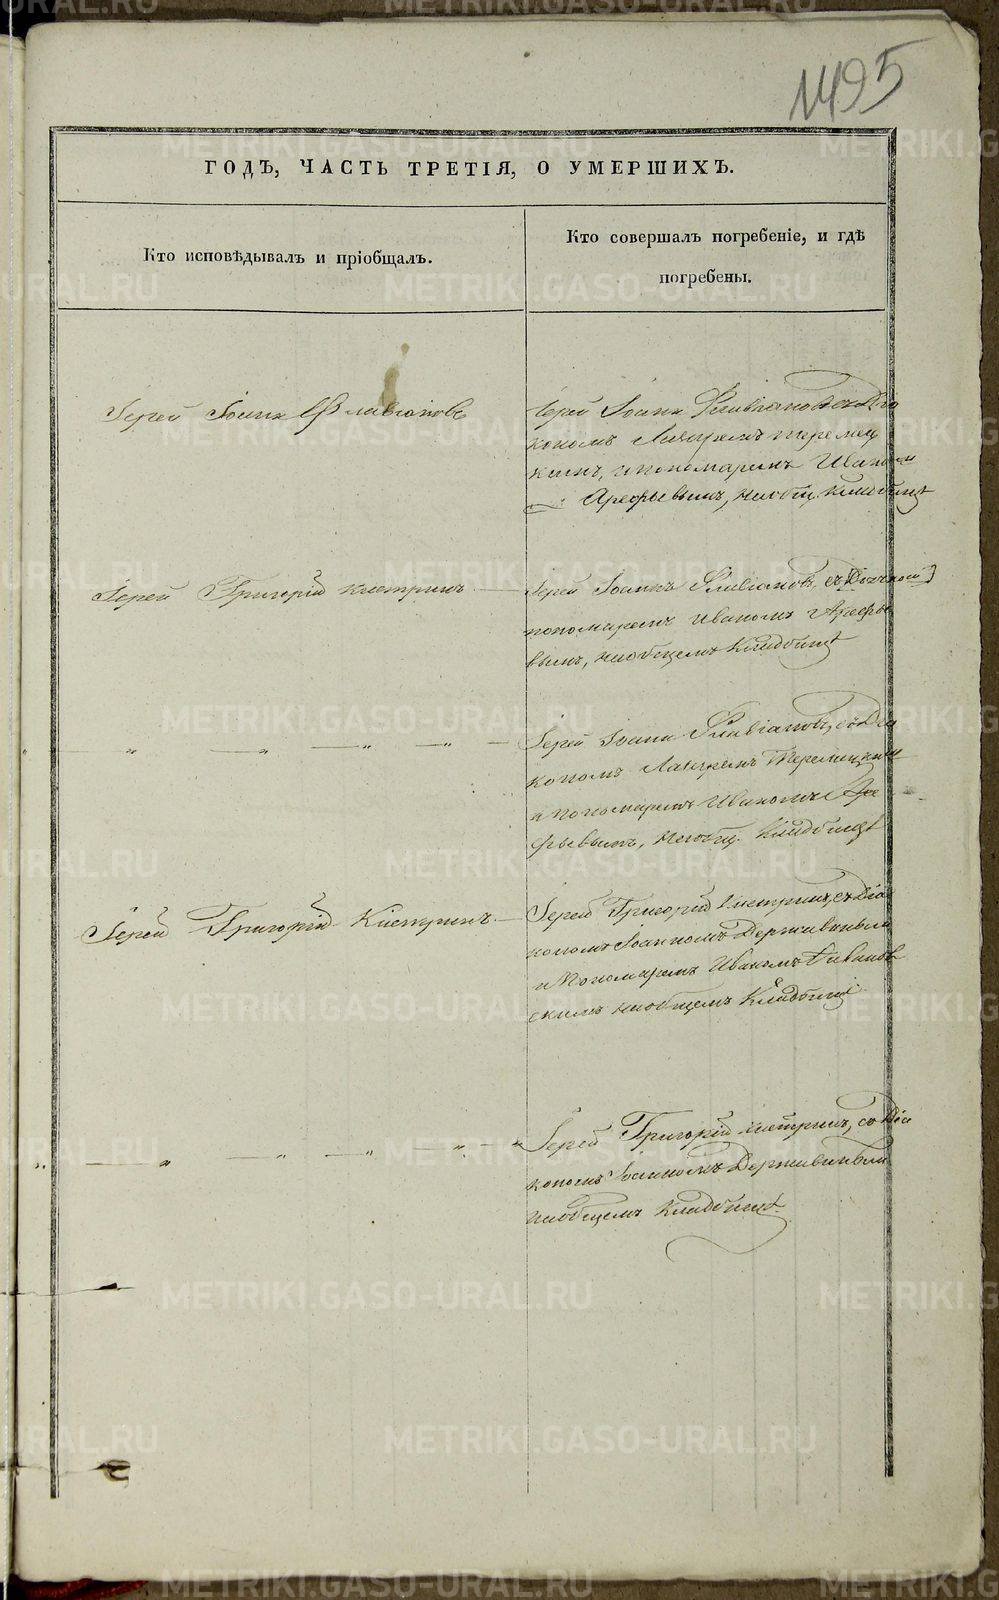 1495
ГОДЪ, ЧАСТЬ ТРЕТІЯ, О УМЕРШИХЪ.
Кто исповѣдывалъ и пріобщалъ.
Кто совершалъ погребеніе, и гдѣ
погребены.
Іерей Іоаннъ Флавіановъ
Іерей Іоаннъ Флавіановъ съ Діа
кономъ
пономаремъ Иваном
Арефьевымъ, на общ. кладбищѣ
Іерей Григорій Кистринъ
Іерей Іоаннъ Флавіановъ съ
пономаремъ Иваномъ Арефье
вымъ, на общемъ кладбищѣ
Іерей Іоаннъ Флавіановъ, съ Діа
кономъ
и пономаремъ Иваномъ Аре
фьевымъ, на общ. кладбищѣ
Іерей Григорій Кистринъ
Іерей Григорій Кистринъ, съ Діа
кономъ Іоанномъ Державинымъ
и Пономаремъ Иваномъ
скимъ на общемъ Кладбищѣ
Іерей Григорій Кистринъ, съ Діа
кономъ Іоанномъ Державинымъ
на общемъ Кладбищѣ.
METRIKI.GASO-URAL.RU